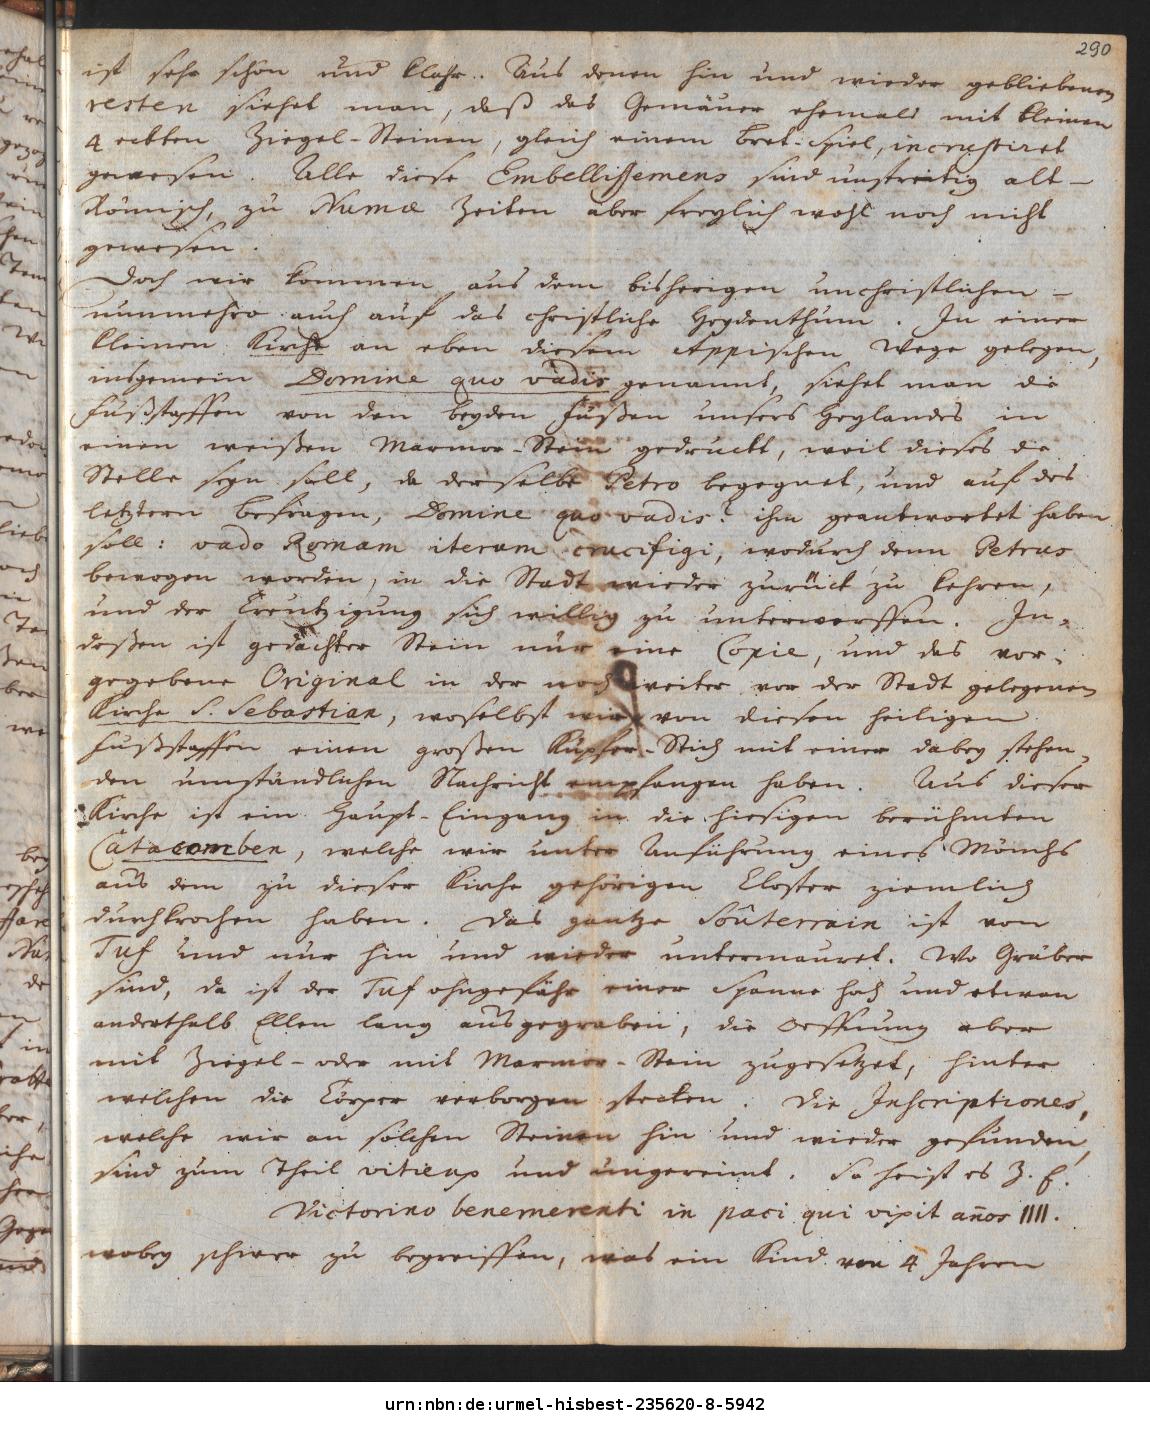 290
ist sehr schön und klahr. Aus denen hin und wieder gebliebenen
resten siehet man, daß das Gemäuer ehemals mit kleinen
4 eckten Ziegel-Steinen, gleich einem Bret-Spiel, incrustiret
gewesen. Alle diese Embellissemens sind unstreitig alt-
Römisch, zu Numæ Zeiten aber freylich wohl noch nicht
gewesen.
Doch wir kommen aus dem bisherigen unchristlichen -
nunmehro auch auf das christliche Heydenthum. In einer
kleinen Kirche an eben diesem Appischen Wege gelegen,
insgemein Domine quo vadis genannt, siehet man die
Fußstapffen von den beyden Füßen unsers Heylandes in
einen weißen Marmor-Stein gedruckt, weil dieses die
Stelle seyn soll, da derselbe Petro begegnet, und auf des
letztern Befragen, Domine quo vadis? ihm geantwortet haben
soll: vado Romam iterum crucifigi, wodurch denn Petrus
bewogen worden, in die Stadt wieder zurück zu kehren,
und der Creutzigung sich willig zu unterwerffen. In-
deßen ist gedachter Stein nur eine Copie, und das vor-
gegebene Original in der noch weiter vor der Stadt gelegenen
Kirche S. Sebastian, woselbst wir von diesen heiligen
Fußstapffen einen großen Kupfer-Stich mit einer dabey stehen-
den umständlichen Nachricht empfangen haben. Aus dieser
Kirche ist ein Haupt-Eingang in die hiesigen berühmten
Catacomben, welche wir unter Anführung eines Mönchs
aus dem zu dieser Kirche gehörigen Closter ziemlich
durchkrochen haben. Das gantze Soûterrain ist von
Tuf und nur hin und wieder untermauret. Wo Gräber
sind, da ist der Tuf ohngefähr einer Spanne hoch und etwan
anderthalb Ellen lang ausgegraben, die Oeffnung aber
mit Ziegel- oder mit Marmor-Stein zugesetzet, hinter
welchen die Cörper verborgen stecken. Die Inscriptiones,
welche wir an solchen Steinen hin und wieder gefunden,
sind zum Theil vitieux und ungereimt. So heist es Z. E.
Victorino benemerenti in paci qui vixit años IIII.
wobey schwer zu begreiffen, was ein Kind von 4 Jahren
urn:nbn:de:urmel-hisbest-235620-8-5942